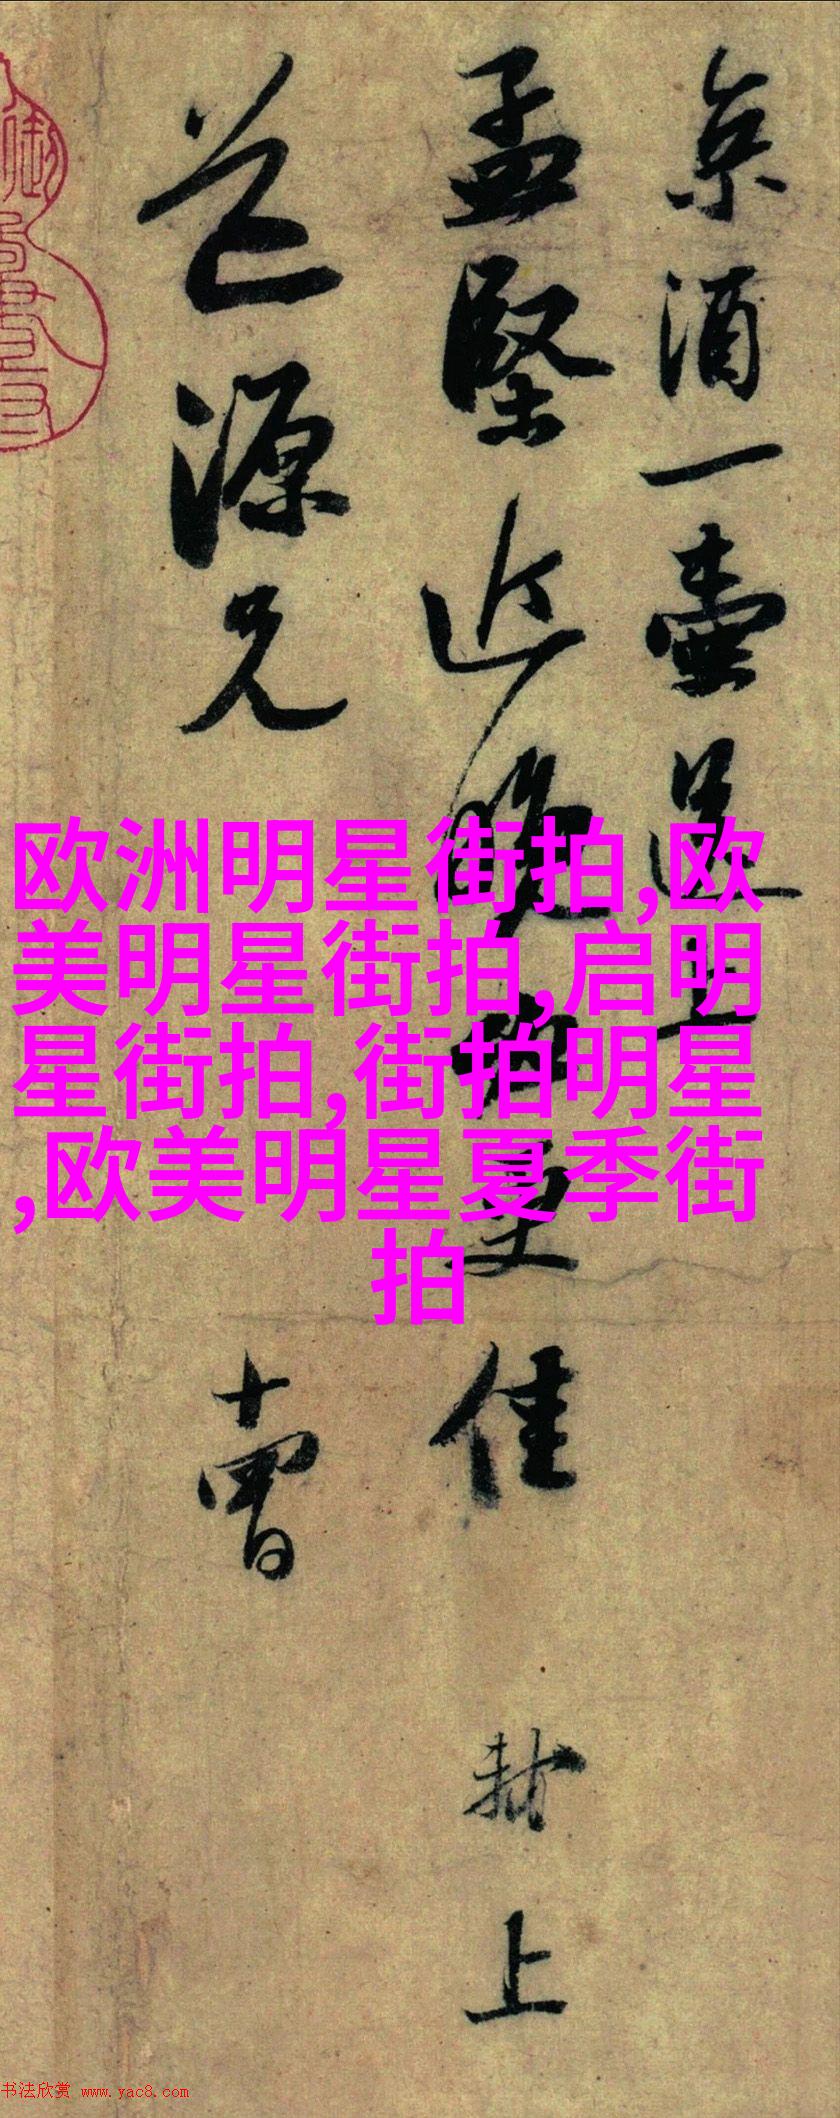 京酒一壺送上
孟堅近晚必更佳
軾上
道源兄
十四日
欧洲明星街拍,欧
美明星街拍,启明
星街拍,街拍明星
,欧美明星夏季街
拍
书法欣赏 www.yac8.com